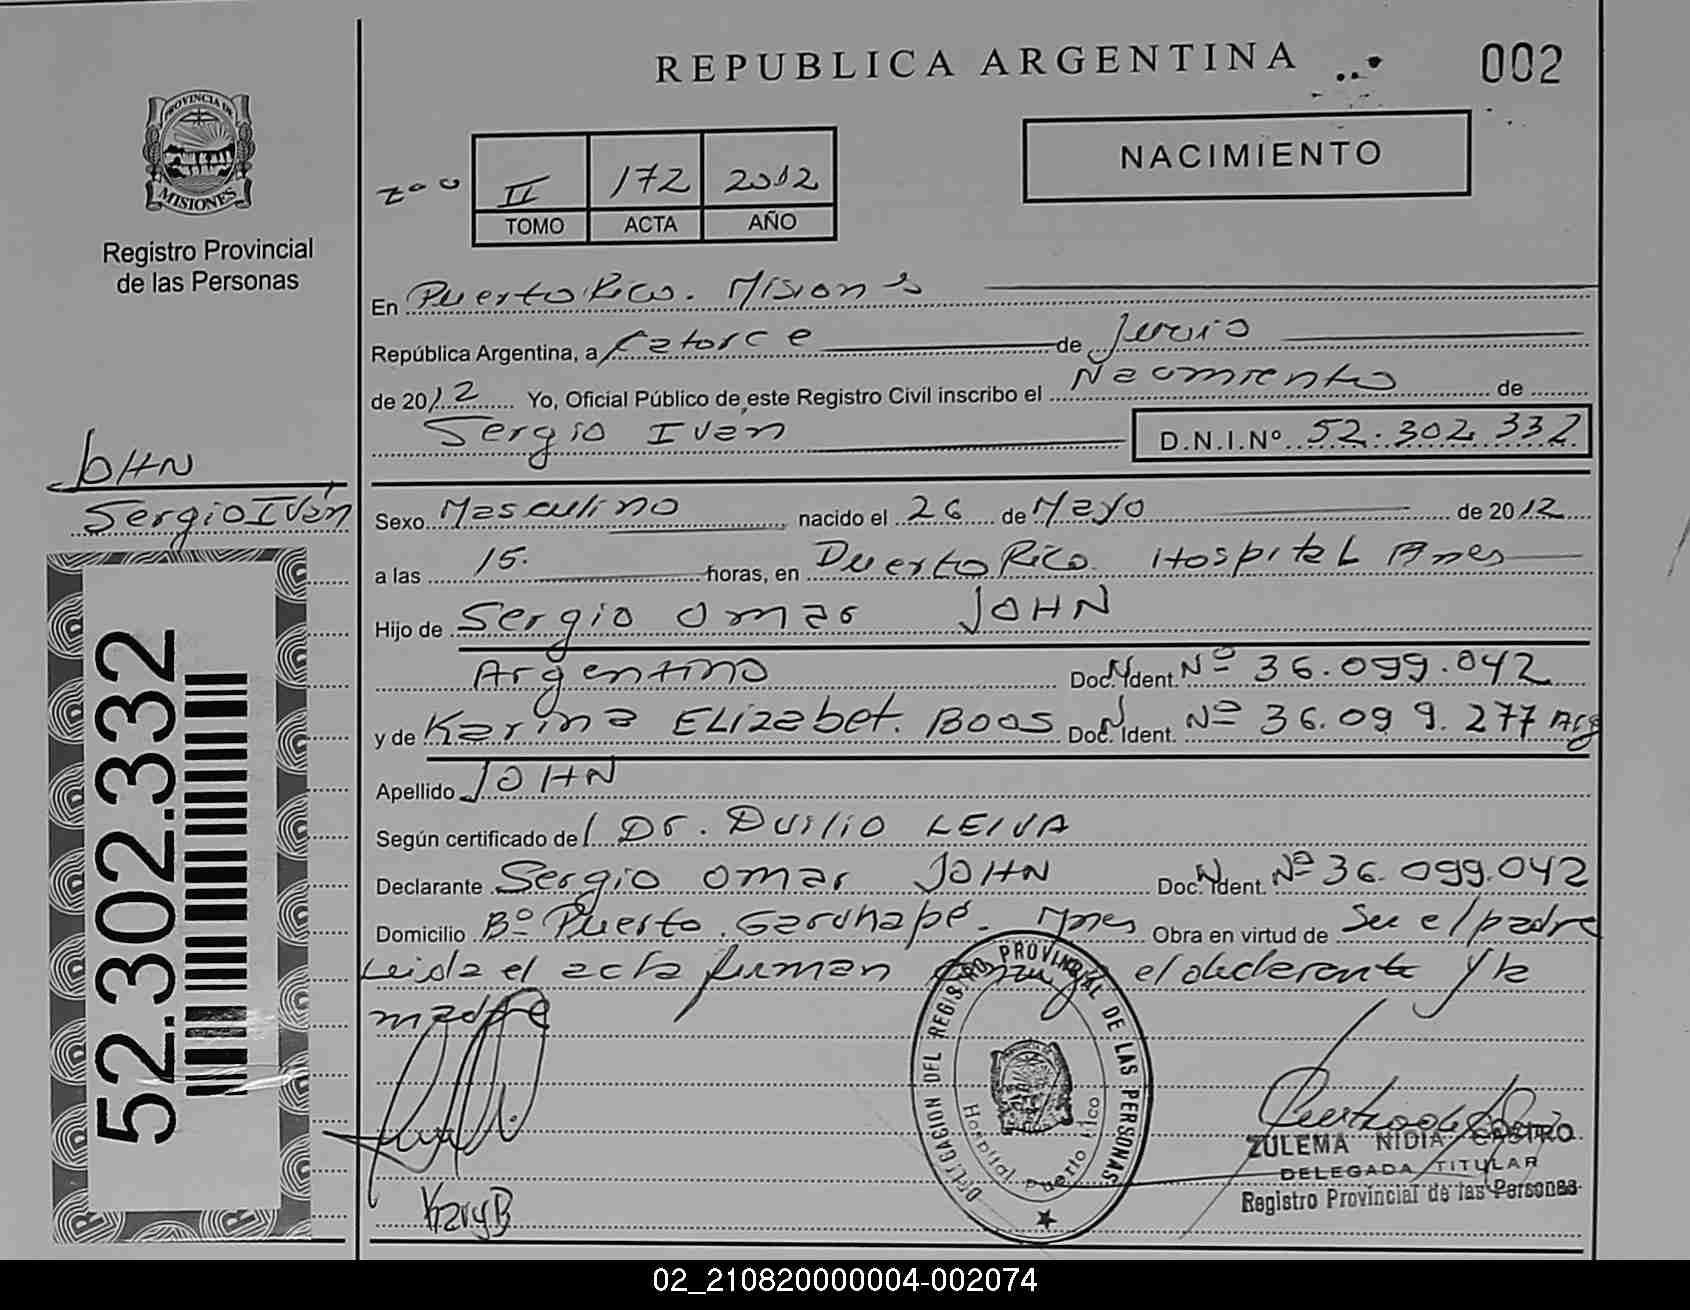 REPUBLICA ARGENTINA
002
PROVINCIA DE
MISIONES
Registro Provincial
de las Personas
NACIMIENTO
II 172 2012
TOMO ACTA AÑO
En Puerto Rico. Misiones
República Argentina, a Catorce de Junio
de 2012 Yo, Oficial Público de este Registro Civil inscribo el Nacimiento de
Sergio Ivan D.N.I.Nº 52.302.332
JOHN
Sergio Iván
Sexo Masculino nacido el 26 de Mayo de 2012
a las 15. horas, en Puerto Rico Hospital
Hijo de Sergio Omar JOHN
Argentino Doc. Ident. Nº 36.099.042
y de Karina ELizabet. BOOS Doc. Ident. Nº 36.099.277 Arg
Apellido JOHN
Según certificado del Dr. Duilio LEIVA
Declarante Sergio Omar JOHN Doc. Ident. Nº 36.099.042
Domicilio Bº Puerto Garuhapé. Mnes Obra en virtud de Ser el padre
Leida el acta firman el declarante y la
madre
52.302.332
DELEGACION DEL REGISTRO PROVINCIAL DE LAS PERSONAS
Hospital Puerto Rico
KaryB
ZULEMA NIDIA CASTRO
DELEGADA TITULAR
Registro Provincial de las Personas
02_210820000004-002074